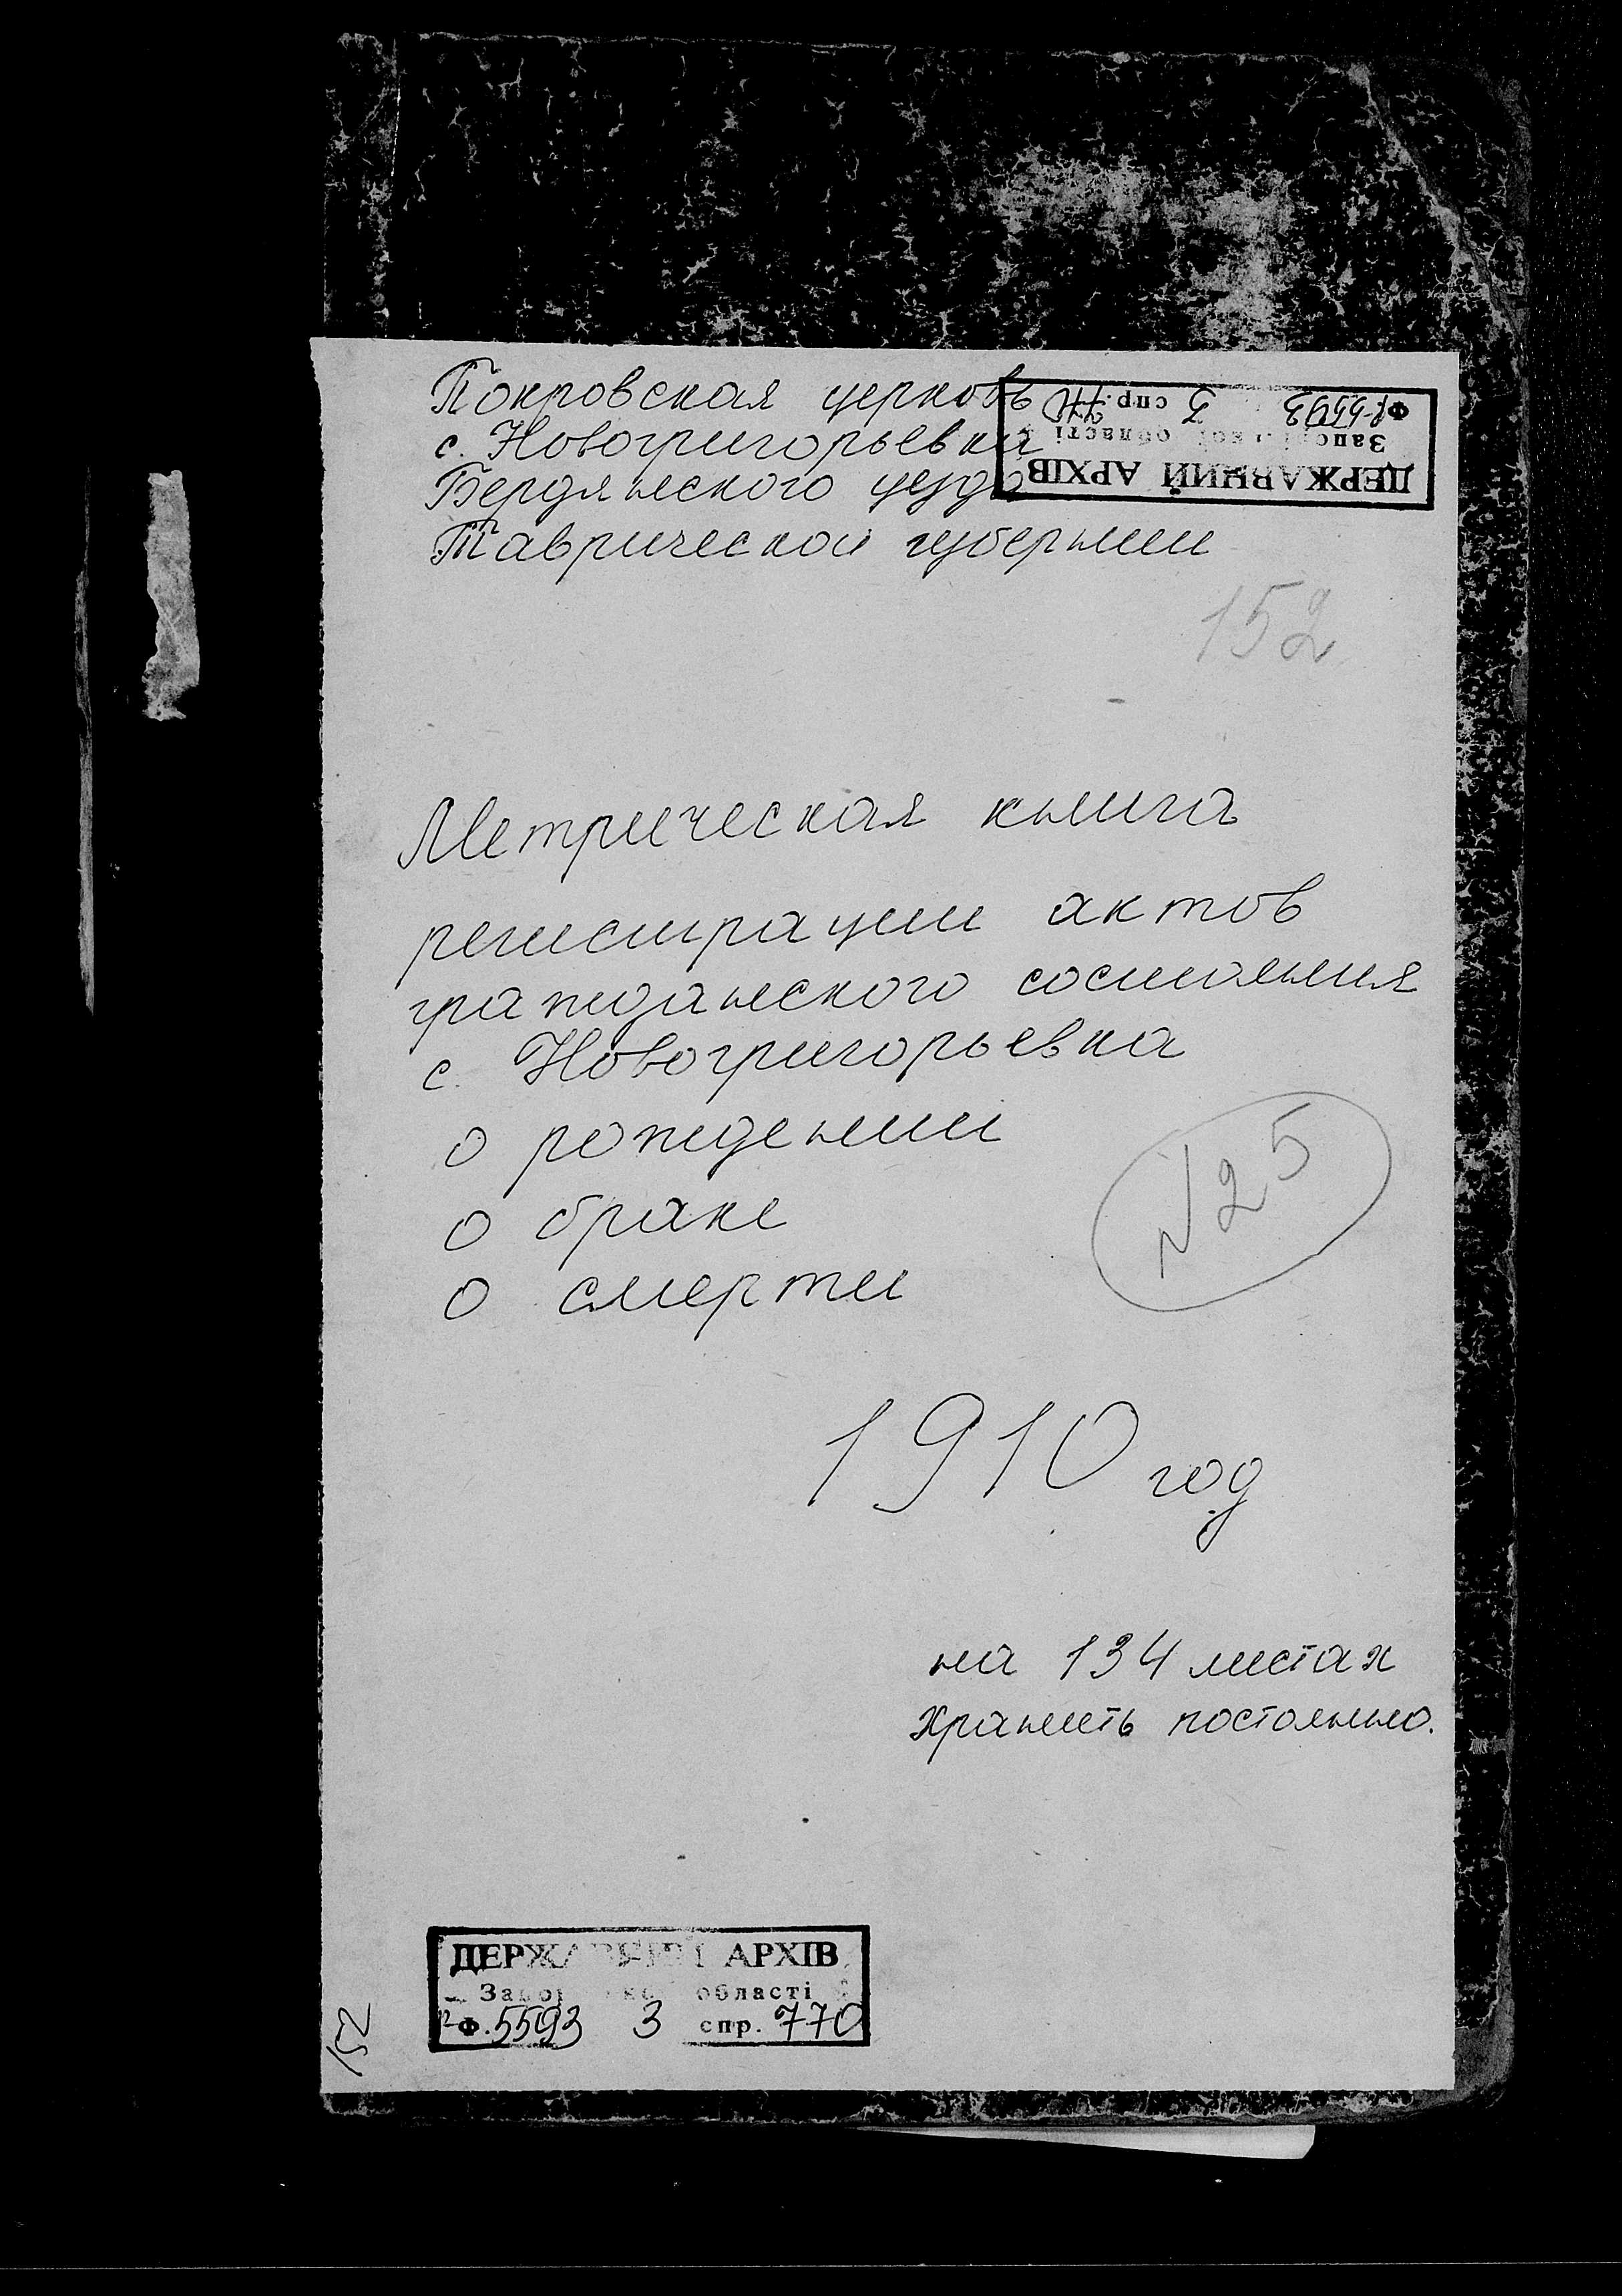 Покровская церковь
с. Новогригорьевка
Бердянского уезда
Таврической губернии
ДЕРЖАВНИЙ АРХІВ
області
Ф. Р-5593 3 спр. 770
152
Метрическая книга
регистрации актов
гражданского состояния
с. Новогригорьевка
о рождении
о браке
о смерти
N25
1910 год
на 134 листах
Хранить постоянно.
ДЕРЖАВНИЙ АРХІВ
області
Ф. 5593 3 спр. 770
152